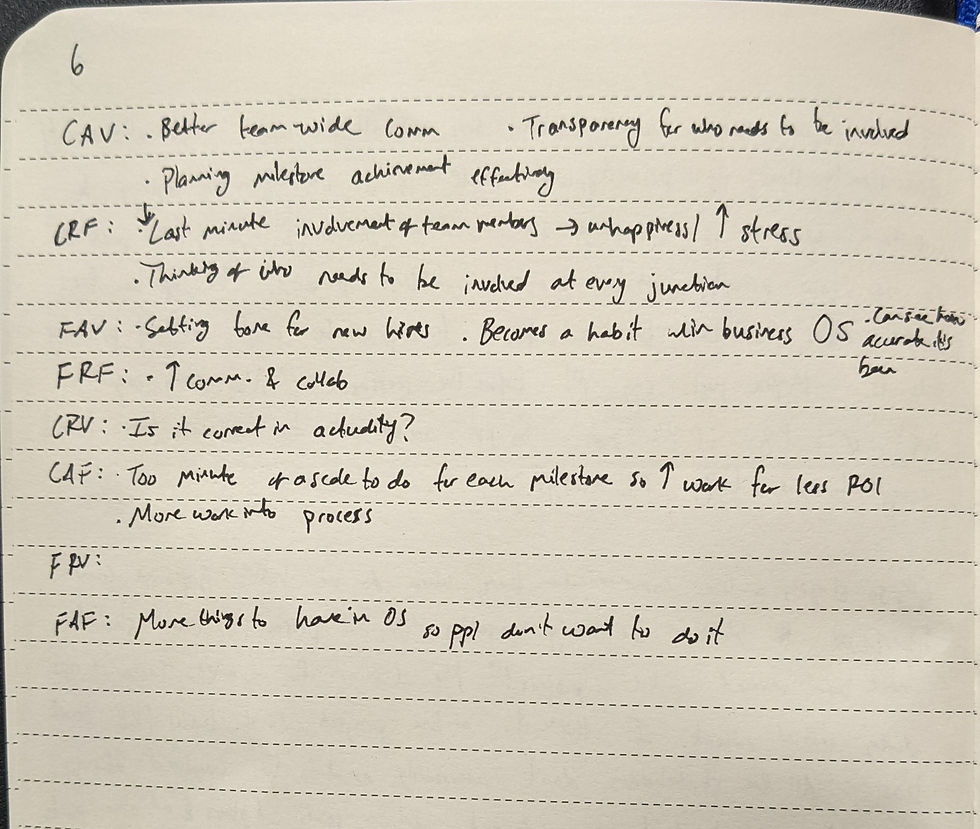 6
CAV: · Better team-wide comm · Transparency for who needs to be involved
· Planning milestone achievement effectively
CRF: · ↓ Last minute involvement of team members → unhappiness / ↑ stress
· Thinking of who needs to be involved at every junction
FAV: · Setting tone for new hires · Becomes a habit w/in business OS · Can see how
accurate it's
been
FRF: · ↑ comm. & collab
CRV: · Is it correct in actuality?
CAF: · Too minute of a scale to do for each milestone so ↑ work for less ROI
· More work into process
FRV:
FAF: More things to have in OS so ppl don't want to do it